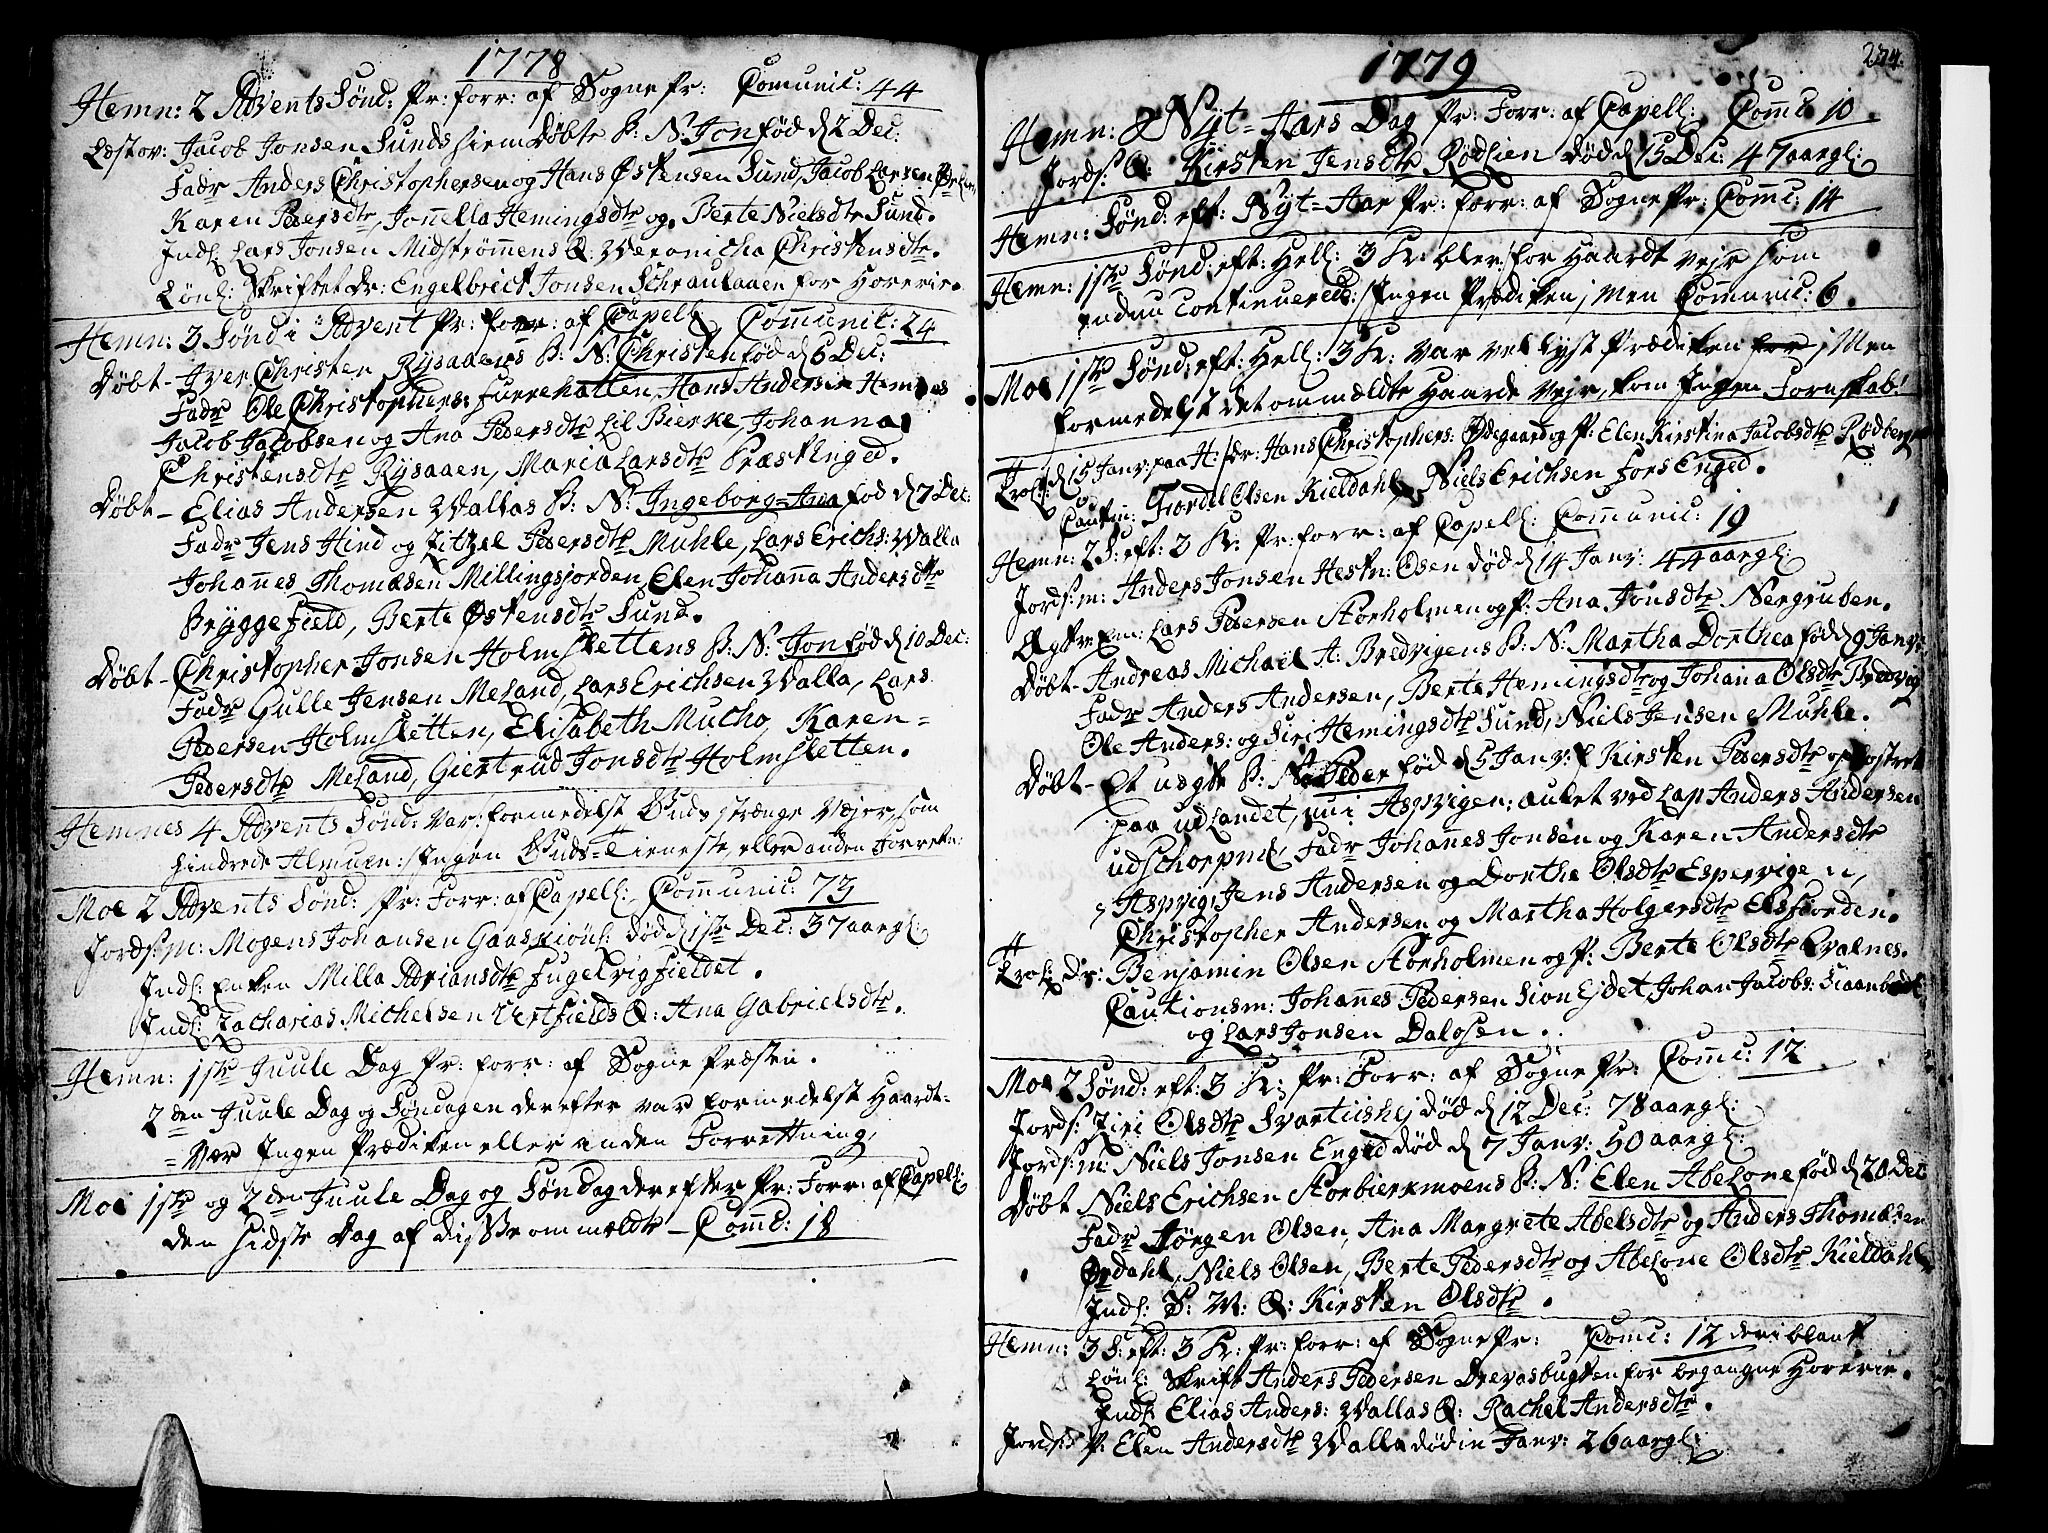 1778
Hemn: 2 Advents Sönd: Pr: forr: af Sogne Pr: Comunic: 44
Jacob Jonsen Sundshiem Döbte B: N: Jon fød d 2 Dec:
Fadr Anders Christophersen og Hans Østensen Sund, Jacob Larsen
Karen Pedersdtr, Jonella Hemingsdtr og Berte Nielsdtr Sund.
Indl: Lars Jonsen Midströmmens Q: Weronicha Christensdtr.
Lönl: Skriftet Dr: Engelbrict Jonsen Schraulaaen for Horerie.
Hemn: 3 Sönd i Advent Pr: forr: af Capell: Communic: 24
Döbt - Iver Christen Rysaaens B: N: Christen fød d 6 Dec:
Fadr Ole Christophers: Furrehatten, Hans Andersen Hemnes
Jacob Jacobsen og Ana Pedersdtr Lil Bierke, Johanna
Christensdtr Rysaaen, Maria Larsdtr Præstenged.
Döbt - Elias Andersen Wallas B: N: Ingeborg-Ana fød d 7 Dec:
Fadr Jens Hind og Zitzel Pedersdtr Muhle, Lars Erichs: Walla
Johannes Thomæsen Millingsjorden, Elen Johanna Andersdtr
Bryggefield, Berte Østensdtr Sund.
Döbt - Christopher Jonsen Holmslettens B: N: Jon fød d 10 Dec:
Fadr Gulle Jensen Meland, Lars Erichsen Walla, Lars
Pedersen Holmsletten, Elisabeth Mucho, Karen
Pedersdtr Meland, Giertrud Jonsdtr Holmsletten.
Hemnes 4 Advents Sönd: var: formedelst Guds strænge Vejer, som
hindrede Almuen:/ Ingen Guds-Tieneste, eller anden Forretn:
Moe 2 Advents Sönd: Pr: Forr: af Capell: Communic: 73
Jords: m: Mogens Johansen død d 1ste Dec: 37 aar gl:
Indl: Enken Milla Adriansdtr Fugelvigfieldet.
Indl: Zacharias Michelsen Q: Ana Gabrielsdtr.
Hemn: 1ste Juule Dag Pr: forr: af Sogne Præsten.
2den Juule Dag og Søndagen derefter var formedelst Haardt-
= Vær Ingen Prædiken eller anden Forrettning,
Moe 1ste og 2den Juule Dag og Søndag derefter Pr: Forr: af Capell:
den sidste Dag af disse ommældte - Comc: 18
1779
Hemn: Nyt-Aars Dag Pr: Forr: af Capell: Comc 10
Jords: Q: Kirsten Jensdtr Rödlien död d 15 Dec: 47 aar gl:
Hemn: Sönd: eft: Nyt-Aar Pr: forr: af Sogne Pr: Comc: 14
Hemn: 1ste Sönd: eft: Hell: 3 K: blev /: for Haardt Vejr som
endnu Continuerede:/ Ingen Prædiken; Men Communic: 6.
Moe 1ste Sönd: eft: Hell: 3 K: var vel lyst Prædiken; Men
formedelst det ommældte Haarde Vejr, kom Ingen
d 15 Janv: paa H: Dr: Hans Christophers: Ødegaard og P: Elen Kirstina Jacobsdtr
Cautin: Fiordel Olsen Kieldahl, Niels Erichsen Fors Enged.
Hemn: 2 S: eft: 3 K: Pr: forr: af Capell: Communic: 19
Jords: m: Anders Jonsen død d 14 Janv: 44 aar gl:
Lars Pedersen Storholmen og P: Ana Jonsdtr Nergruben.
Döbt - Andreas Michael A: Bredvigens B: N: Martha Dorthea fød d 9 Janv:
Fadr Anders Andersen, Berte Hemingsdtr og Johana Olsdtr Bredvig
Ole Anders: og Siri Hemingsdtr Sund, Niels Jensen Muhle.
Döbt - Et uægte B: N: Peder fød d 5 Janv: Kirsten Pedersdtr opfostret
paa udlandet, nu i Aspvigen; aulet ved Lap Anders Andersen
Fadr Johannes Jonsen og Karen Andersdtr
Aspvig, Jens Andersen og Dorthe Olsdtr Espervigen,
Christopher Andersen og Martha Holgersdtr Elsfiorden.
Trol: Dr: Benjamin Olsen Storholmen og P: Berte Olsdtr Qvalnes.
Cautionsm: Johannes Pedersen Sion Ejdet, Johan Jacobs:
og Lars Jonsen Dalosen.
Moe 2 Sönd: eft: 3 K: Pr: Forr: af Sogne Pr: Comc: 12
Jords: Ziri Olsdtr död d 12 Dec: 78 aar gl:
Jords: m: Niels Jonsen Enged död d 7 Janv: 50 aar gl:
Döbt Niels Erichsen Storbierkmoens B: N: Elen Abelone fød d 20 Dec
Fadr Jörgen Olsen, Ana Margrete Abelsdtr og Anders Thomæsen
Ørdahl, Niels Olsen, Berte Pedersdtr og Abelone Olsdtr Kieldahl
Indl: S: M: Q: Kirsten Olsdtr.
Hemn: 3 S: eft: 3 K: Pr: forr: af Sogne Pr: Comc: 12 deriblant
Lönl: Skrift Anders Pedersen Drevasbugten for begangne Horerie.
Indl: Elias Anders: Wallas Q: Rachel Andersdtr.
Jords: P: Elen Andersdtr Walla död in Janv: 26 aar gl: